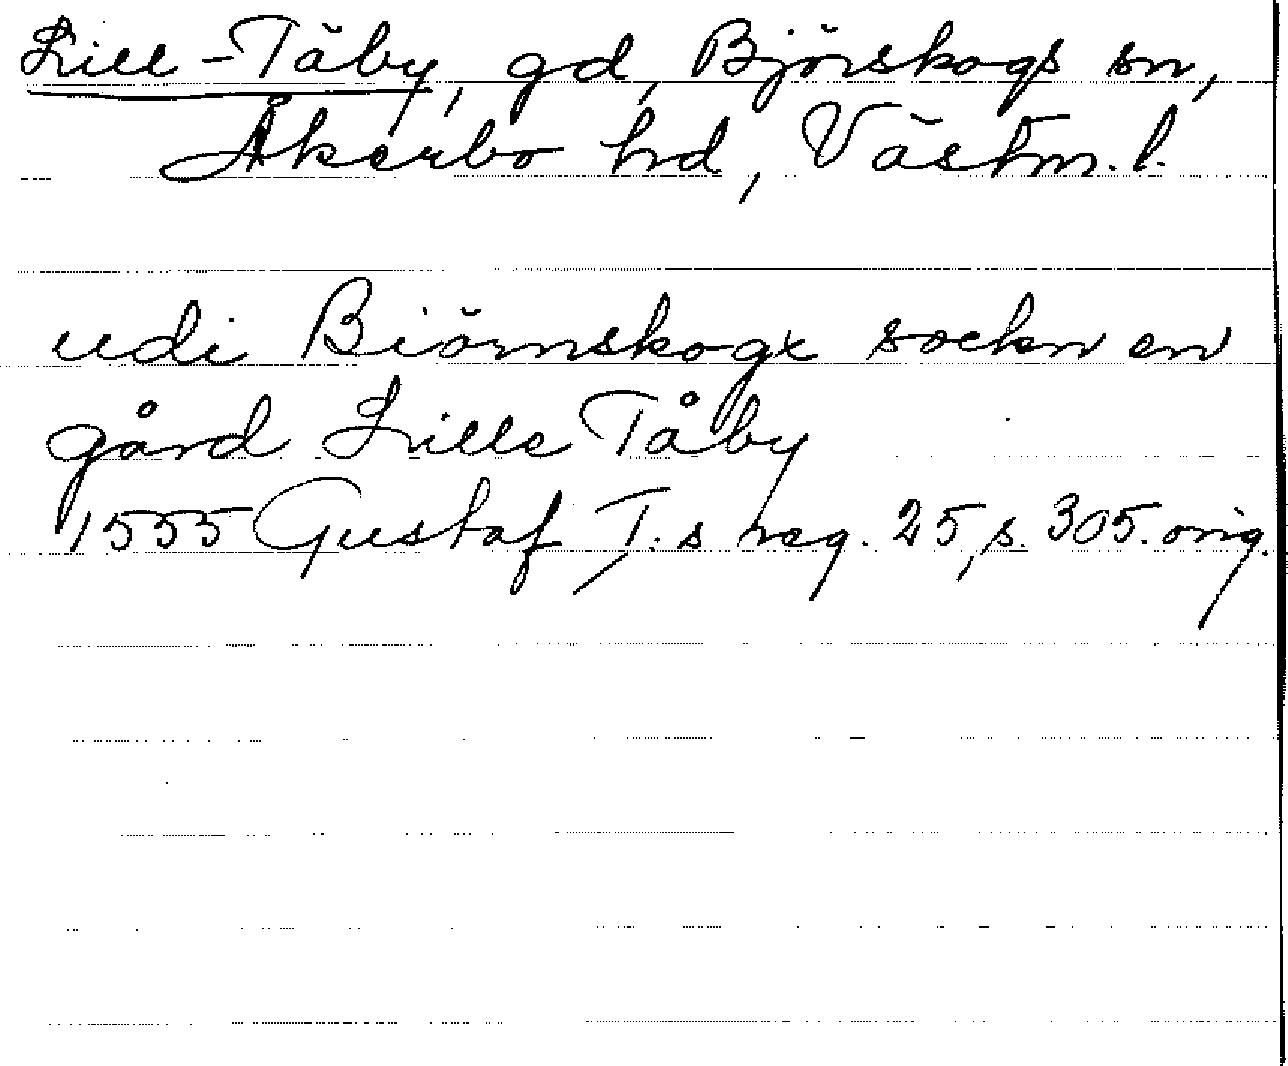 Lill-Täby, gd, Björskogs sn,
Åkerbo hd, Västm. l.
udi Biörnskogx sockn en
gård Lille Tåby
1555 Gustaf I.s reg. 25, s. 305. orig.